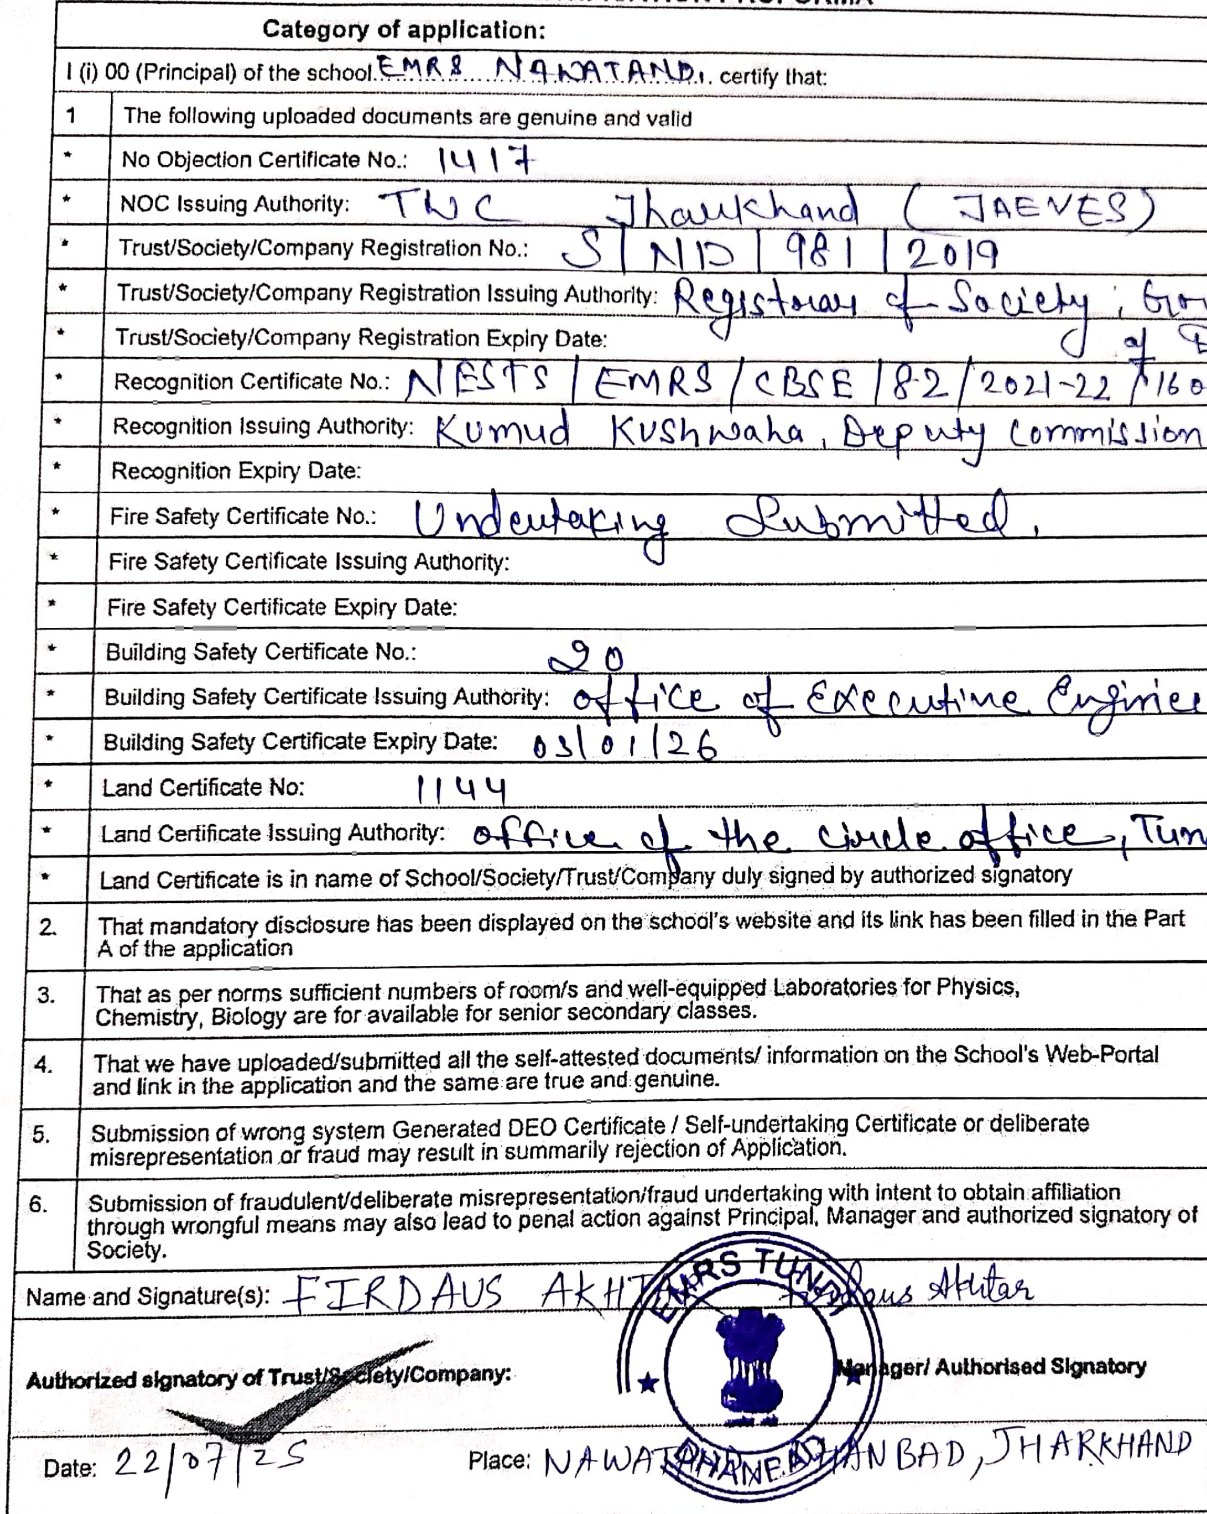 Category of application:
I (i) 00 (Principal) of the school. EMRS NAWATAND. certify that:
1 The following uploaded documents are genuine and valid
* No Objection Certificate No.: 1417
* NOC Issuing Authority: TWC Jharkhand (JAEVES)
* Trust/Society/Company Registration No.: S/ND/981/2019
* Trust/Society/Company Registration Issuing Authority: Registrar of Society,
of
* Trust/Society/Company Registration Expiry Date:
* Recognition Certificate No.: NESTS/EMRS/CBSE/82/2021-22/160
* Recognition Issuing Authority: Kumud Kushwaha, Deputy Commission
* Recognition Expiry Date:
* Fire Safety Certificate No.: Undertaking Submitted.
* Fire Safety Certificate Issuing Authority:
* Fire Safety Certificate Expiry Date:
* Building Safety Certificate No.: 20
* Building Safety Certificate Issuing Authority: office of Executive Enginee
* Building Safety Certificate Expiry Date: 03/01/26
* Land Certificate No: 1144
* Land Certificate Issuing Authority: office of the circle office, Tun
* Land Certificate is in name of School/Society/Trust/Company duly signed by authorized signatory
2. That mandatory disclosure has been displayed on the school's website and its link has been filled in the Part
A of the application
3. That as per norms sufficient numbers of room/s and well-equipped Laboratories for Physics,
Chemistry, Biology are for available for senior secondary classes.
4. That we have uploaded/submitted all the self-attested documents/ information on the School's Web-Portal
and link in the application and the same are true and genuine.
5. Submission of wrong system Generated DEO Certificate / Self-undertaking Certificate or deliberate
misrepresentation or fraud may result in summarily rejection of Application.
6. Submission of fraudulent/deliberate misrepresentation/fraud undertaking with intent to obtain affiliation
through wrongful means may also lead to penal action against Principal, Manager and authorized signatory of
Society.
EMRS TUNDI
Name and Signature(s): FIRDAUS AKHTAR Firdous Akhtar
Authorized signatory of Trust/Society/Company: Manager/ Authorised Signatory
Date: 22/07/25 Place: NAWATAND, DHANBAD, JHARKHAND
DHANBAD